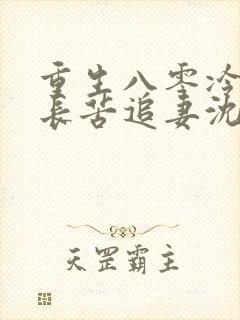 重生八零冷
长苦追妻沈
天罡霸主